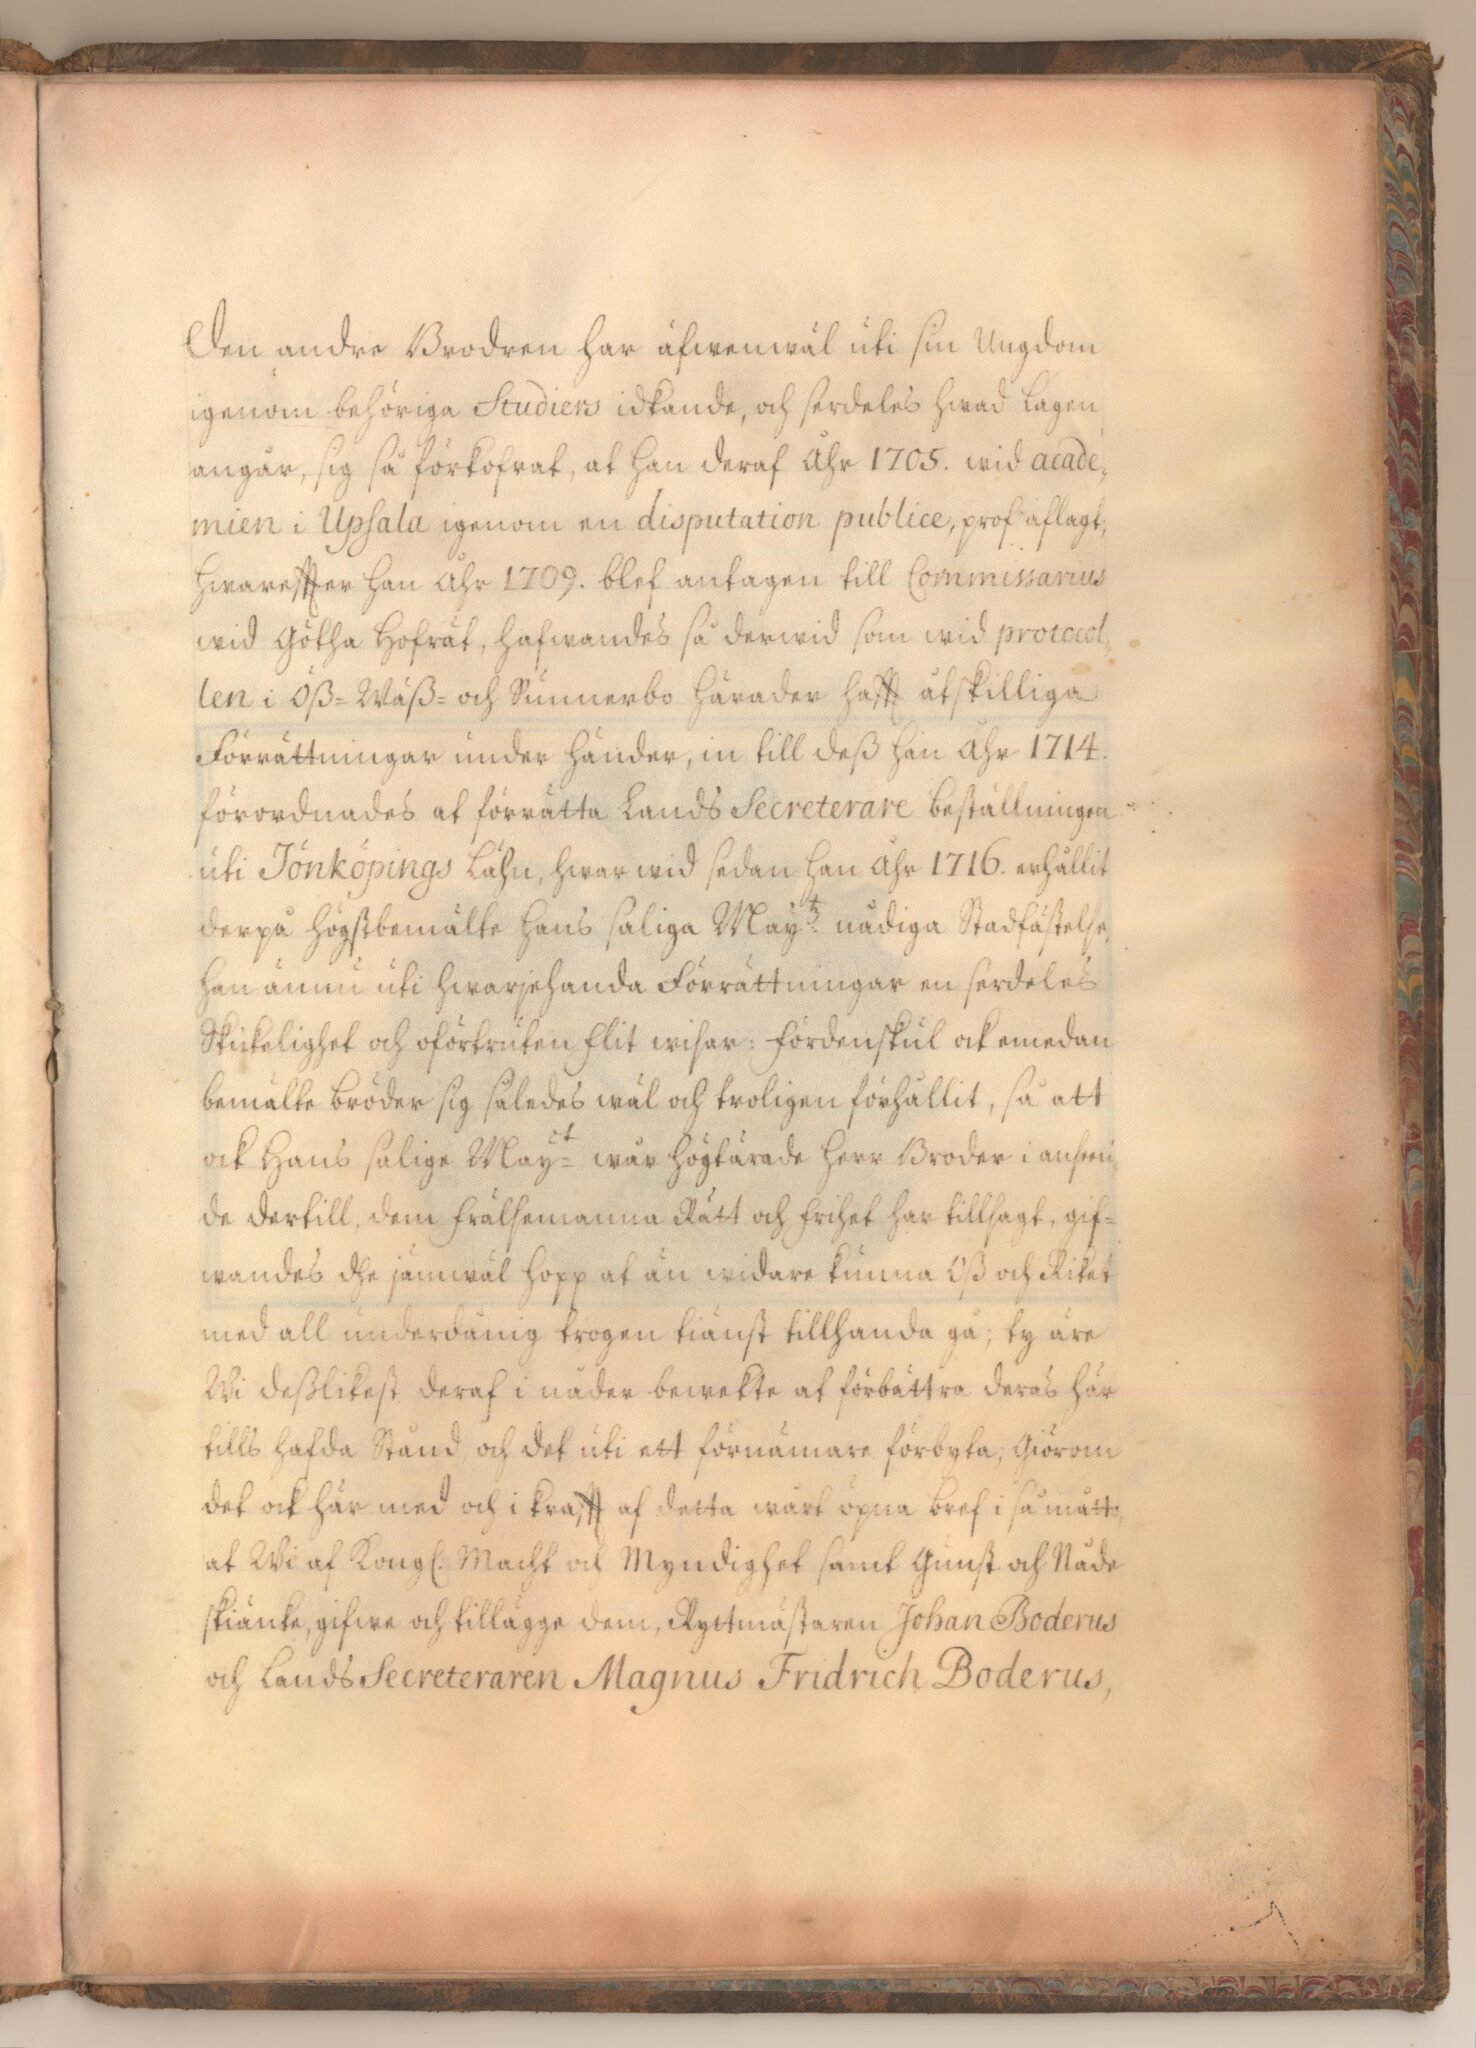 Den andre Brodren har äfwenwäl uti sin Ungdom
igenom behöriga Studiers idkande, och serdeles hwad Lagen
angår, sig så förkofrat, at han deraf Åhr 1705. wid acade,
mien i Upsala igenom en disputation publice, prof aflagt,
hwarefter han Åhr 1709. blef antagen till Commissarius
wid Götha Hofrät, hafwandes så derwid som wid protocol,
len i Öst= Wäst= och Sunnerbo härader haft åtskilliga
Förrättningar under händer, in till deß han Åhr 1714.
förordnades at förrätta Lands Secreterare beställningen
uti Jönköpings Lähn, hwar wid sedan han Åhr 1716. erhållit
derpå högstbemälte Hans saliga Maytz nådiga Stadfästelse,
han ännu uti hwarjehanda Förrättningar en serdeles
Skickelighet och oförtruten flit wisar: fördenskul ock emedan
bemälte bröder sig således wäl och troligen förhållit, så att
ock Hans salige Mayct wår högtärade Herr Broder i anseen,
de dertill, dem frälsemanna Rätt och frihet har tillsagt, gif=
wandes dhe jämwäl hopp at än widare kunna Oß och Riket
med all underdånig trogen tiänst tillhanda gå; ty äre
Wi deßlikest deraf i nåder bewekte at förbättra deras här
tills hafda Stånd, och det uti ett förnämare förbyta; Giörom
det ock här med och i kraft af detta wårt öpna bref i så måtto,
at Wi af Kongl. Macht och Myndighet samt Gunst och Nåde
skiänke, gifwe och tillägge dem, Ryttmästaren Johan Boderus
och Lands Secreteraren Magnus Fridrich Boderus,